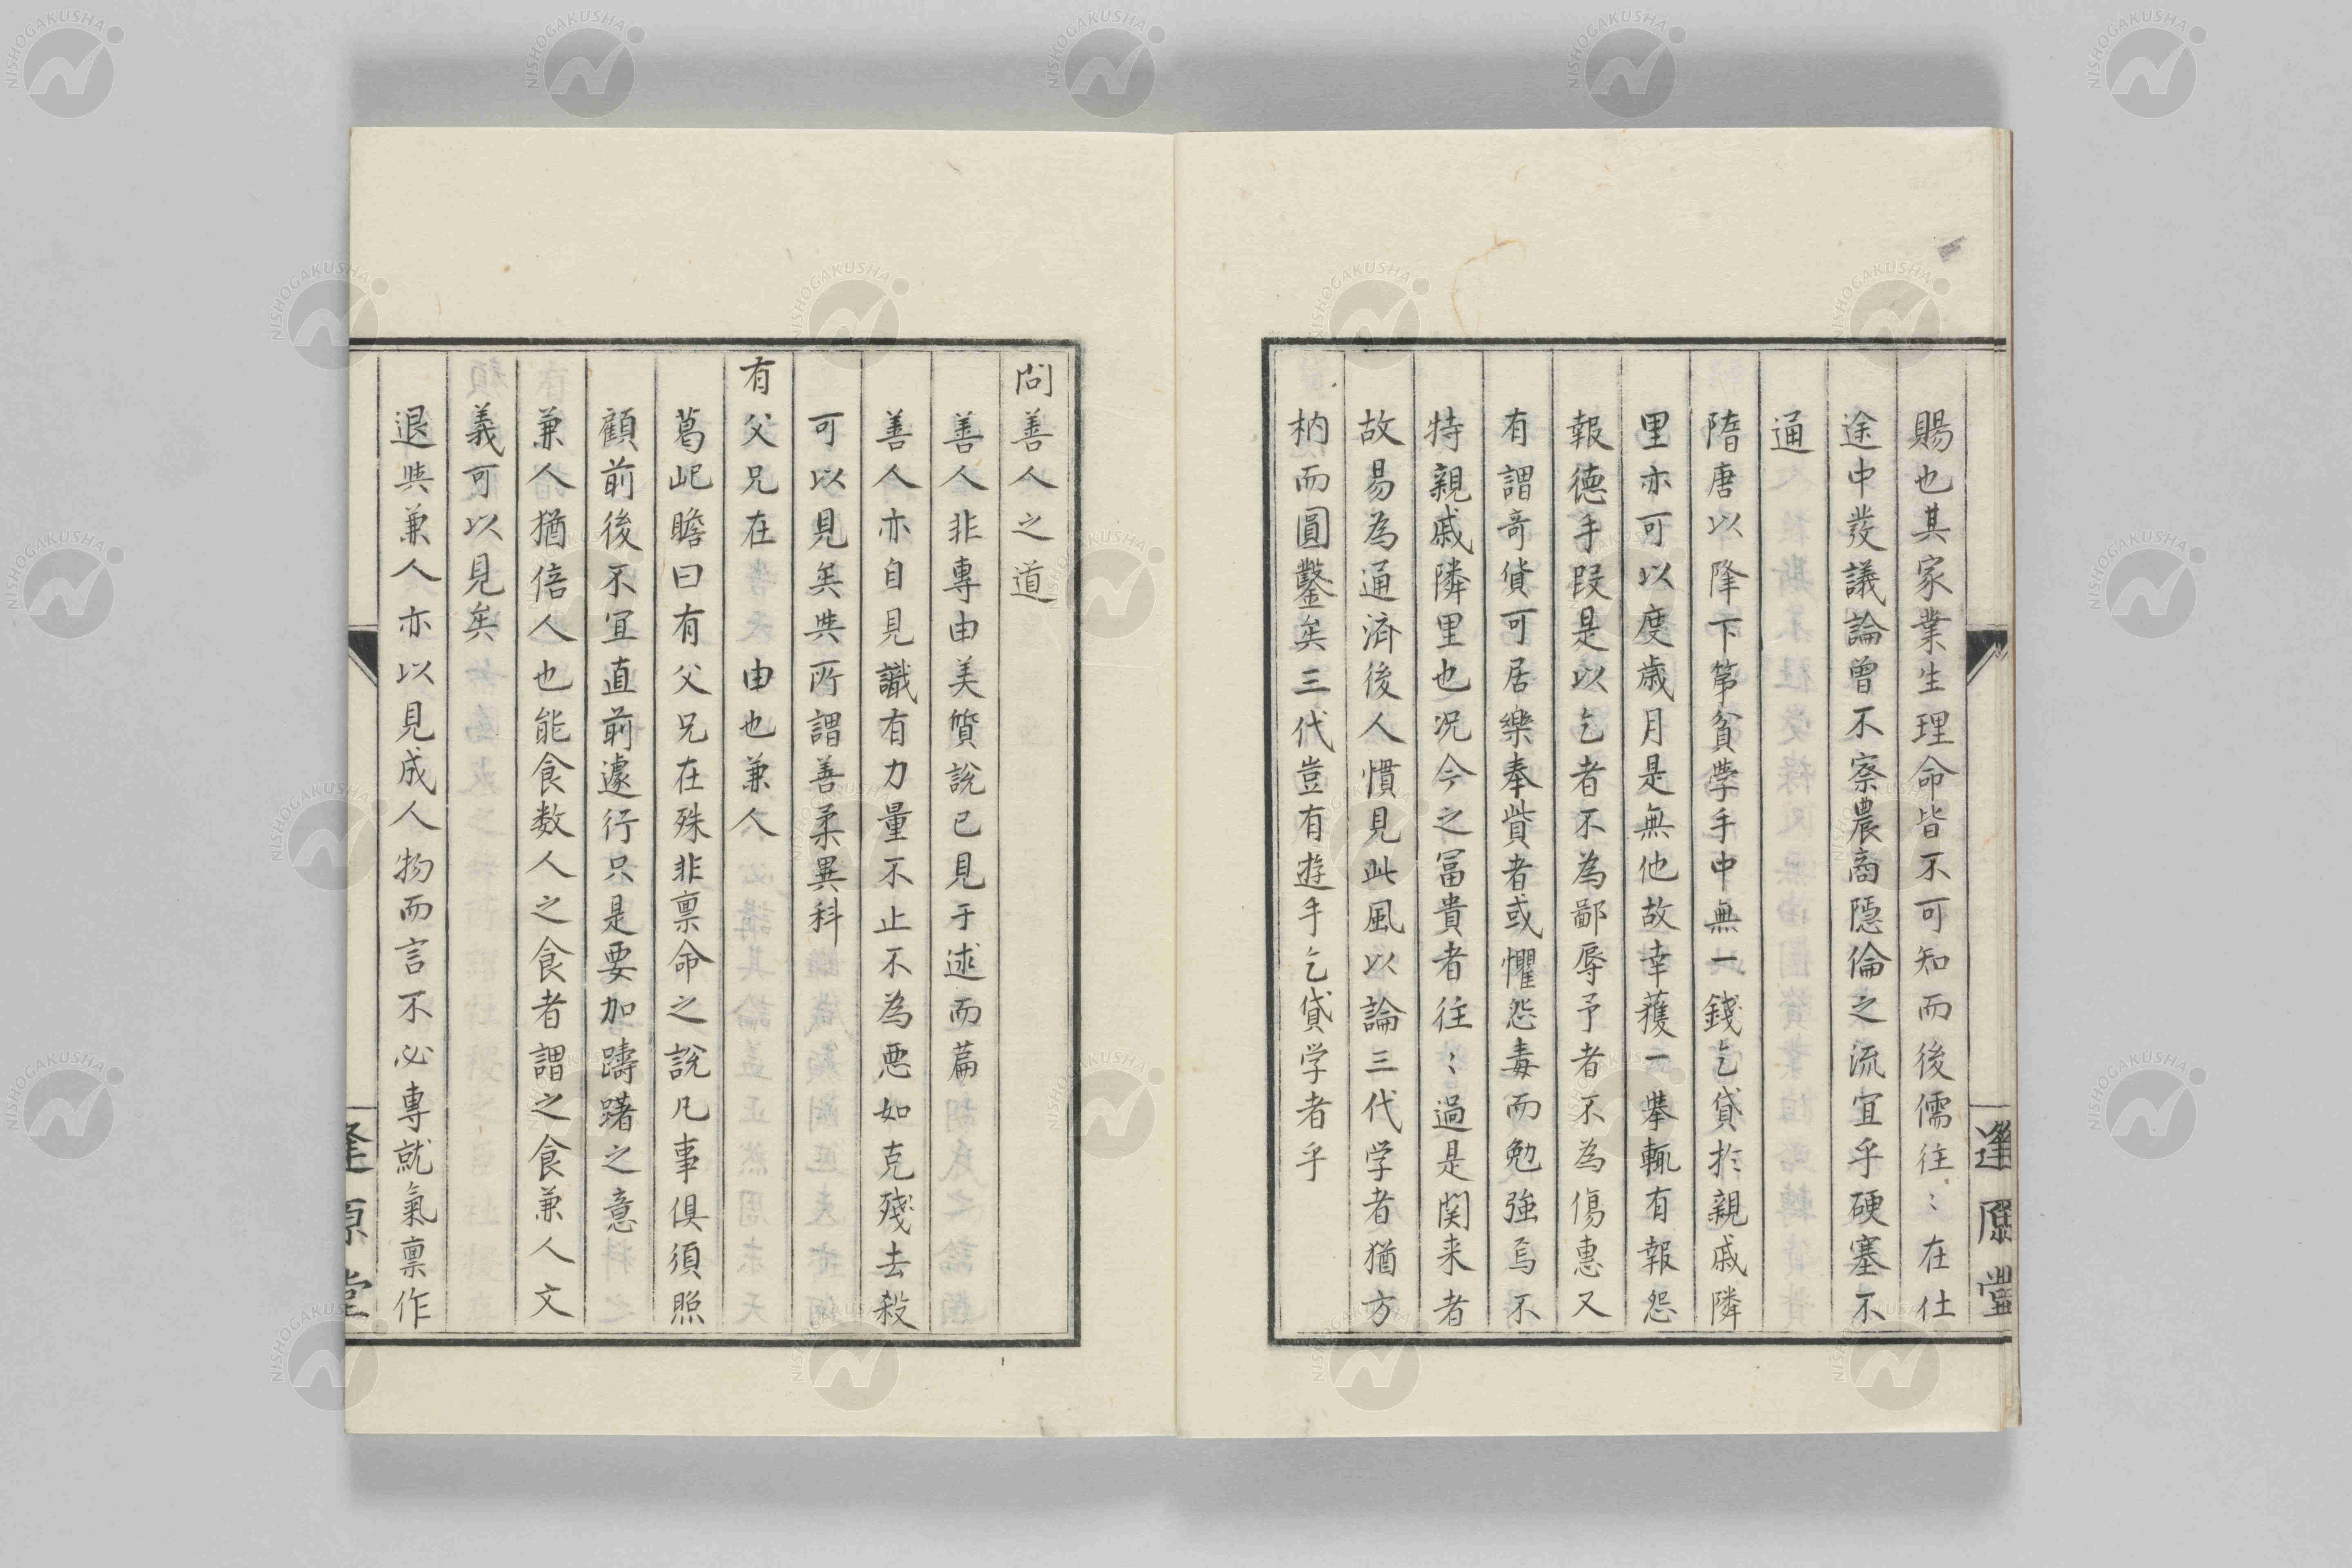 賜也其家業生理命皆不可知而後儒往〻在仕
途中發議論曾不察農商隱倫之流宜乎硬塞不
通
隋唐以降下第貧學手中無一錢乞貸於親戚隣
里亦可以度歲月是無他故幸獲一擧輒有報怨
報德手段是以乞者不為鄙辱予者不為傷惠又
有謂奇貨可居樂奉貲者或懼怨毒而勉強焉不
特親戚隣里也況今之冨貴者往〻過是関来者
故易為通済後人慣見此風以論三代学者猶方
枘而圓鑿矣三代豈有遊手乞貸学者乎
逢原堂
問善人之道
善人非專由美質說已見于述而篇
善人亦自見識有力量不止不為悪如克殘去殺
可以見矣與所謂善柔異科
有父兄在 由也兼人
葛屺瞻曰有父兄在殊非禀命之說凡事俱須照
顧前後不宜直前遽行只是要加躊躇之意
兼人猶倍人也能食数人之食者謂之食兼人文
義可以見矣
退與兼人亦以見成人物而言不必專就氣禀作
逢原堂
NISHOGAKUSHA